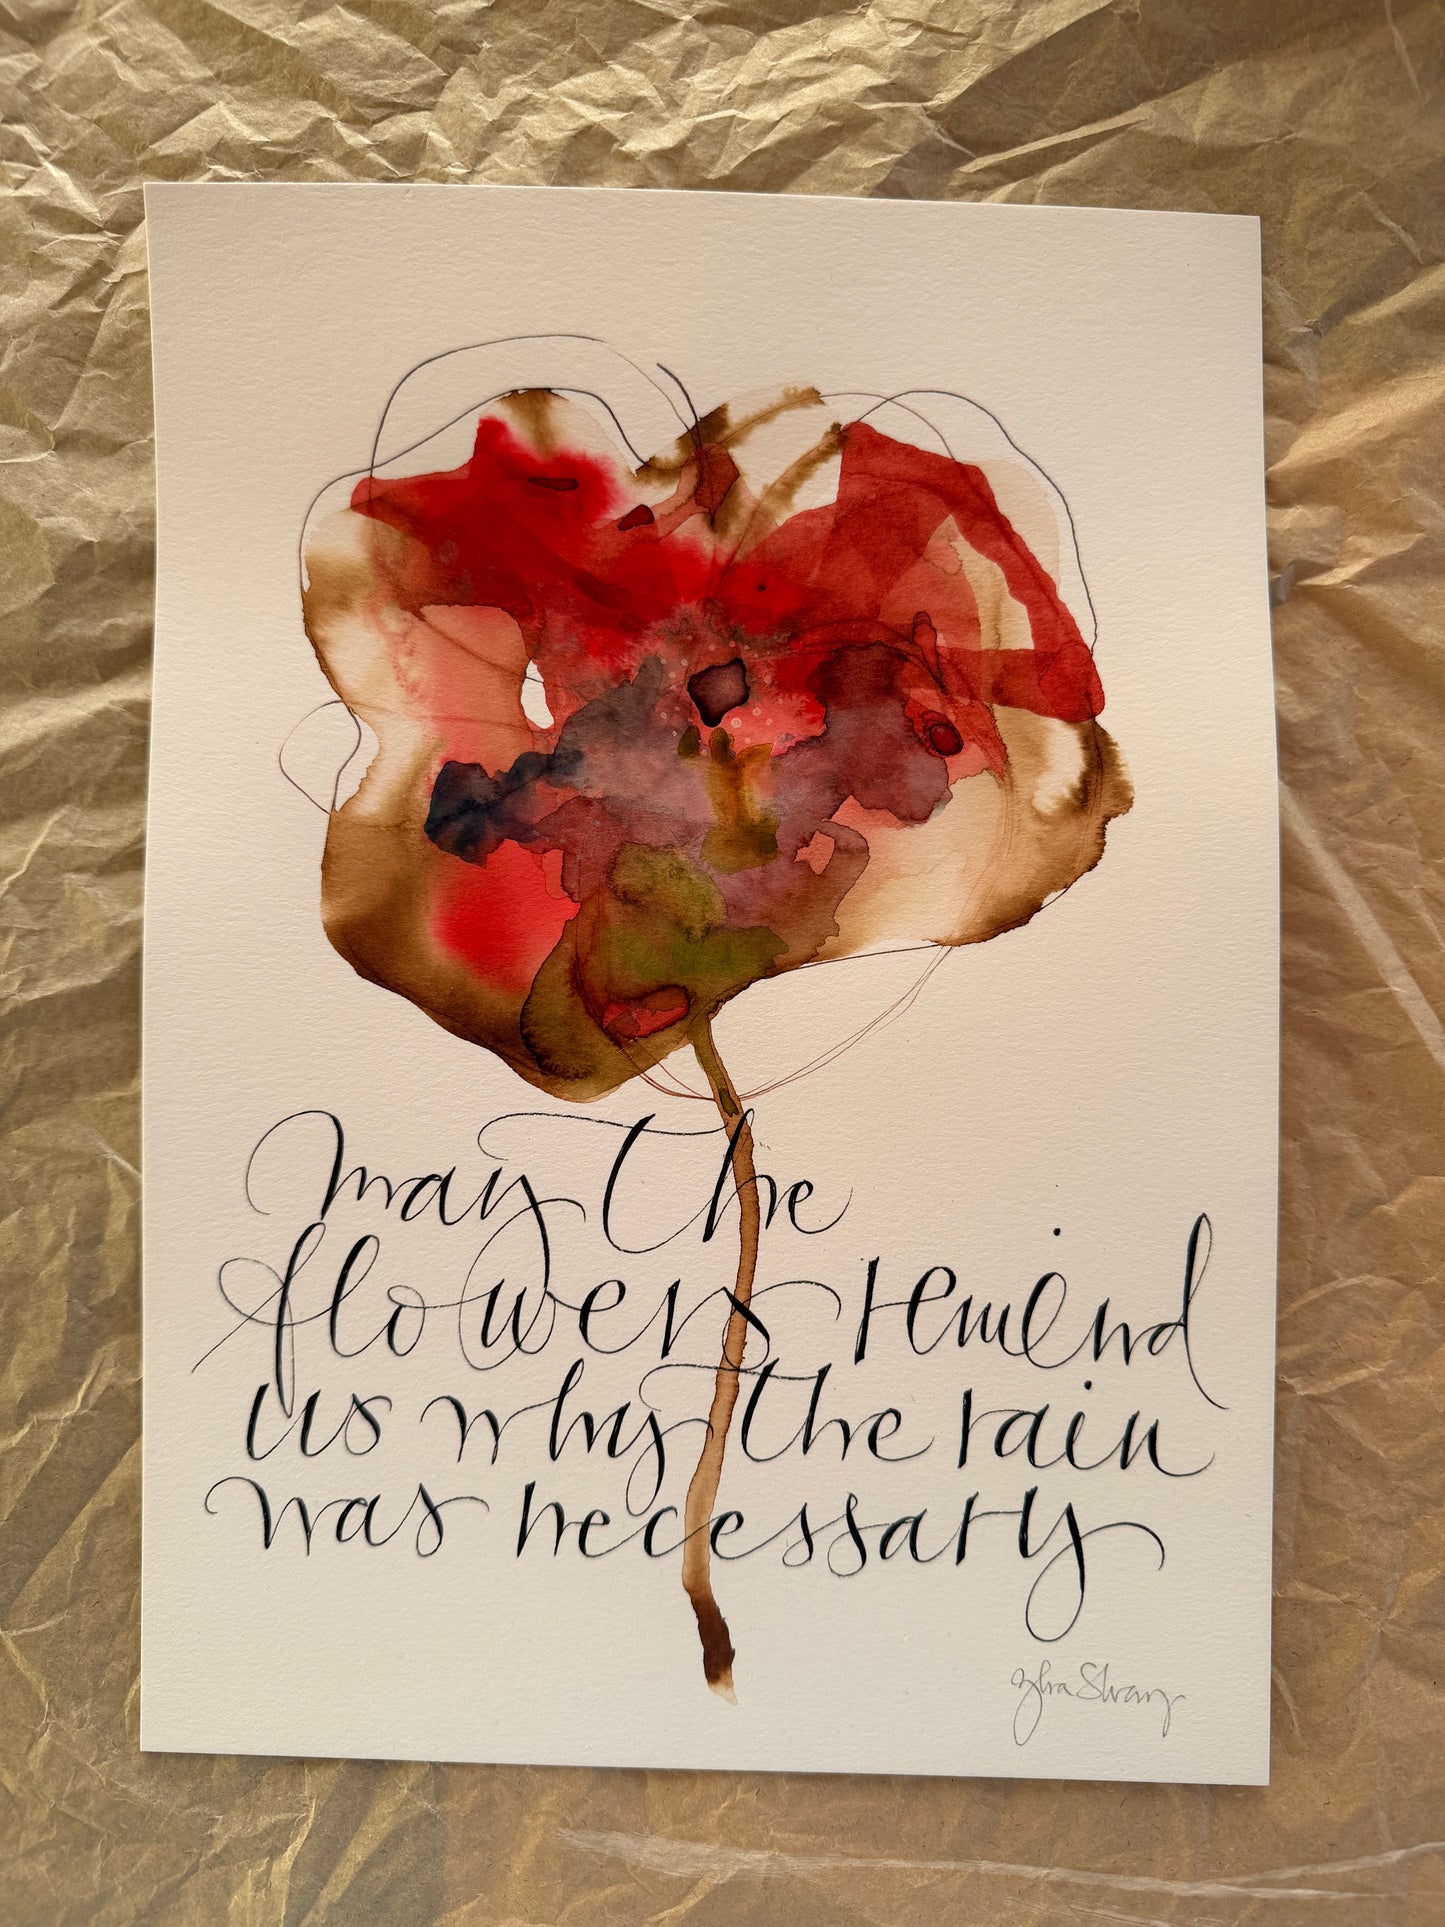 may the
flowers remind
us why the rain
was necessary